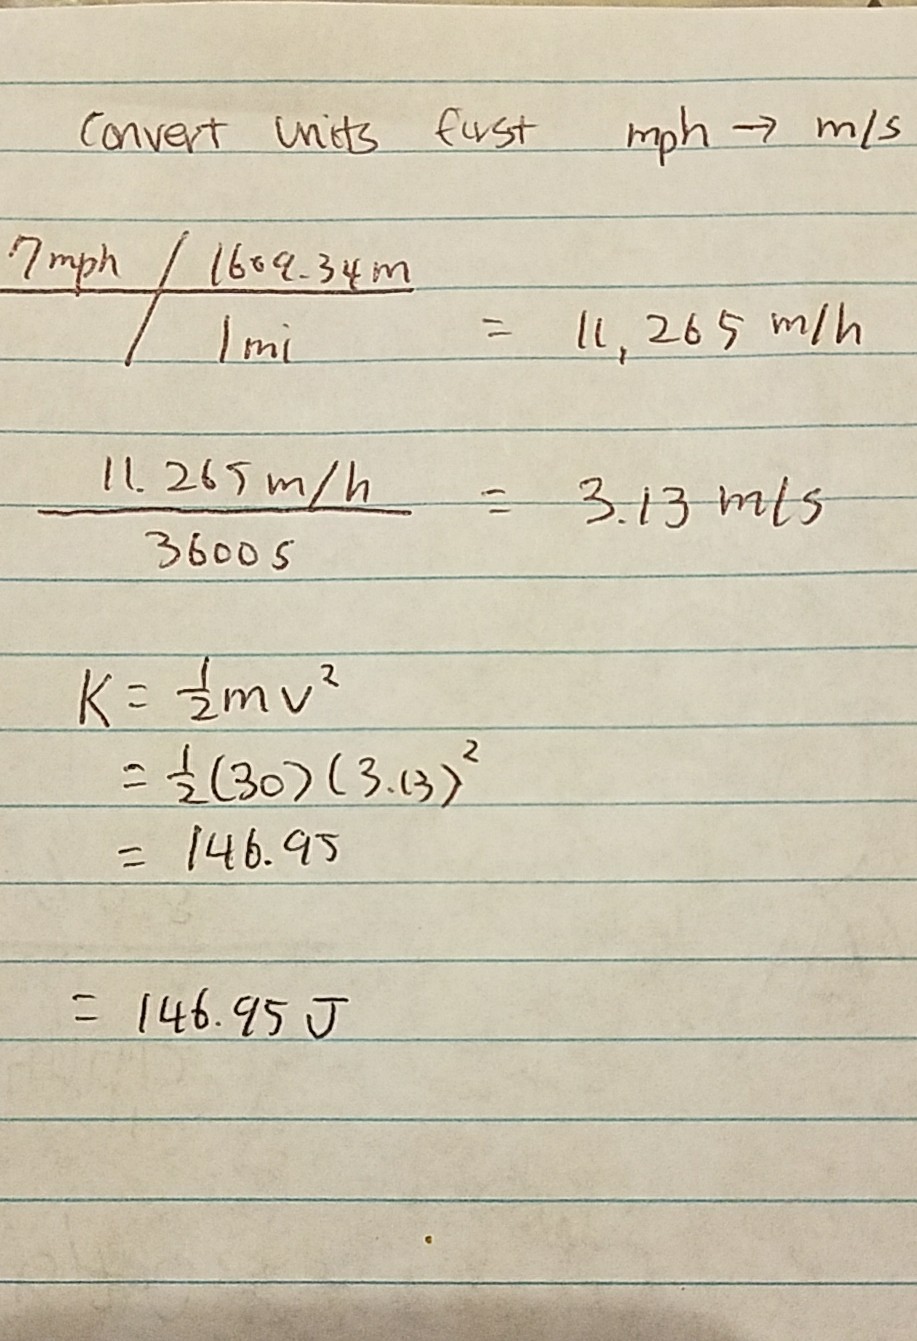 Convert units first mph → m/s
7mph / 1609.34m
/ 1mi = 11,265 m/h
11.265m/h = 3.13 m/s
3600s
K = 1/2 mv²
= 1/2 (30) (3.13)²
= 146.95
= 146.95 J